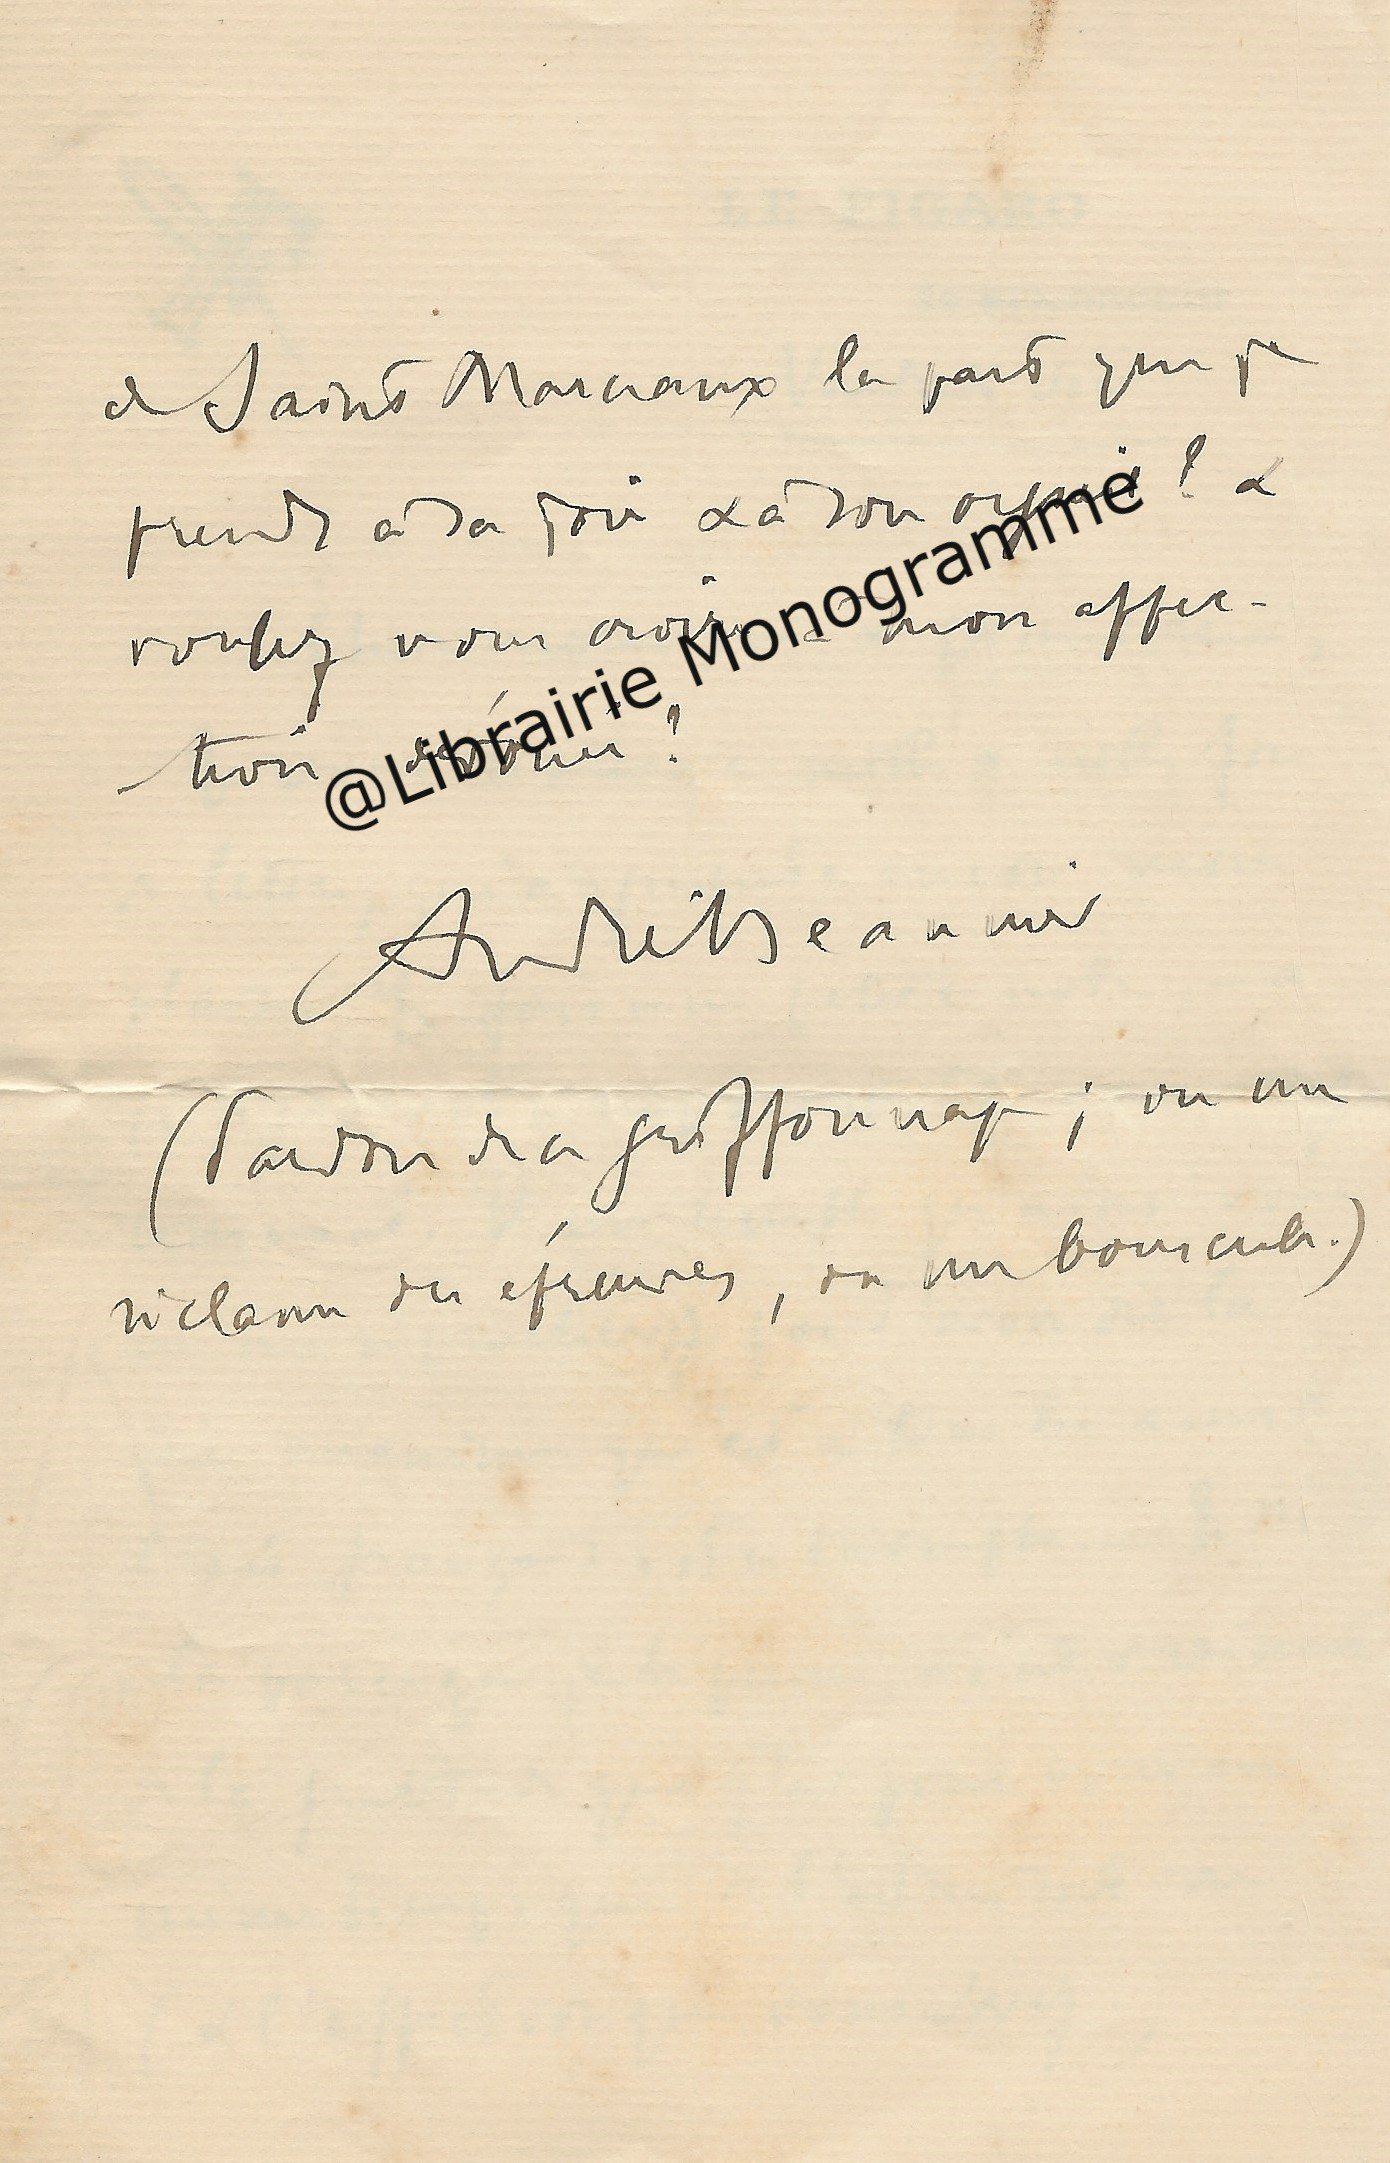 de Saint Marceaux la part que je
prends à sa joie & à son orgueil ? &
voulez vous croire à mon affec-
-tion dévouée ?
André Beaunier
(Pardon de ce griffonnage ; on me
réclame des épreuves, on me bouscule.)
@Librairie Monogramme